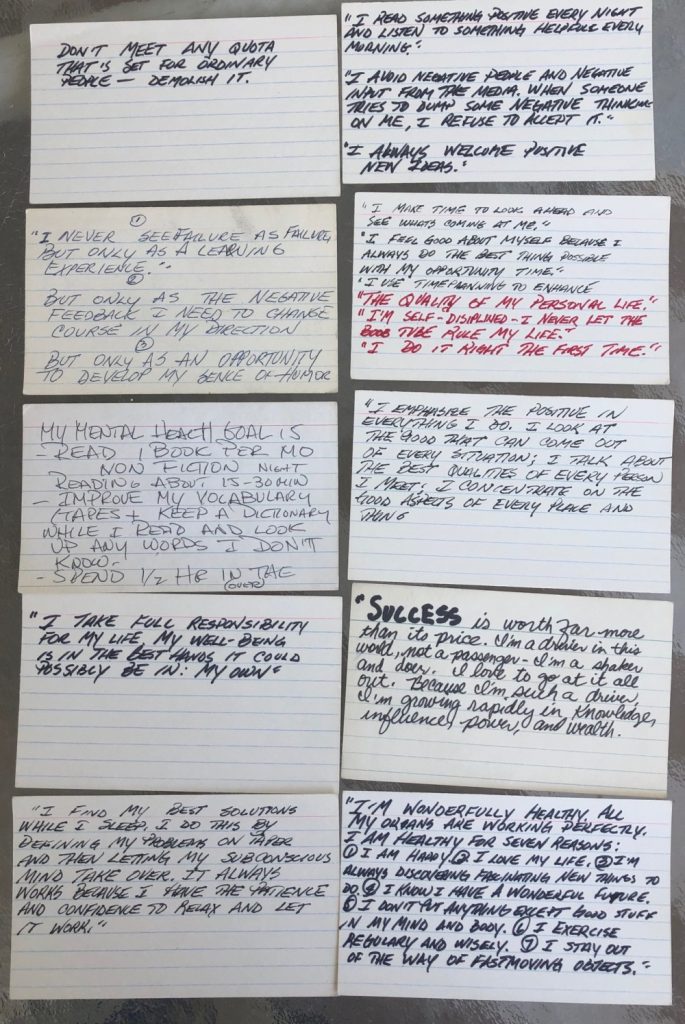 DON'T MEET ANY QUOTA
THAT IS SET FOR ORDINARY
PEOPLE — DEMOLISH IT.
"I READ SOMETHING POSITIVE EVERY NIGHT
AND LISTEN TO SOMETHING HELPFULL EVERY
MORNING."
"I AVOID NEGATIVE PEOPLE AND NEGATIVE
INPUT FROM THE MEDIA. WHEN SOMEONE
TRIES TO DUMP SOME NEGATIVE THINKING
ON ME, I REFUSE TO ACCEPT IT."
"I ALWAYS WELCOME POSITIVE
NEW IDEAS."
①
"I NEVER SEE FAILURE AS FAILURE,
BUT ONLY AS A LEARNING
EXPERIENCE."
②
BUT ONLY AS THE NEGATIVE
FEEDBACK I NEED TO CHANGE
COURSE IN MY DIRECTION
③
BUT ONLY AS AN OPPORTUNITY
TO DEVELOP MY SENCE OF HUMOR
"I MAKE TIME TO LOOK AHEAD AND
SEE WHATS COMING AT ME."
"I FEEL GOOD ABOUT MYSELF BECAUSE I
ALWAYS DO THE BEST THING POSSIBLE
WITH MY OPPORTUNITY TIME."
"I USE TIME PLANNING TO ENHANCE
"THE QUALITY OF MY PERSONAL LIFE."
"I'M SELF-DISIPLINED - I NEVER LET THE
BOOB TUBE RULE MY LIFE."
"I DO IT RIGHT THE FIRST TIME."
MY MENTAL HEACH GOAL IS
- READ 1 BOOK PER MO
NON FICTION NIGHT
READING ABOUT 15-30 MIN
- IMPROVE MY VOCABULARY
(TAPES + KEEP A DICTIONARY
WHILE I READ AND LOOK
UP ANY WORDS I DON'T
KNOW-
- SPEND 1/2 HR IN THE
(OVER)
"I EMPHASIZE THE POSITIVE IN
EVERYTHING I DO. I LOOK AT
THE GOOD THAT CAN COME OUT
OF EVERY SITUATION; I TALK ABOUT
THE BEST QUALITIES OF EVERY PERSON
I MEET; I CONCENTRATE ON THE
GOOD ASPECTS OF EVERY PLACE AND
THING
"I TAKE FULL RESPONSIBILITY
FOR MY LIFE, MY WELL-BEING
IS IN THE BEST HANDS IT COULD
POSSIBLY BE IN: MY OWN"
"SUCCESS is worth far more
than its price. I'm a driver in this
world, not a passenger - I'm a shaker
and doer. I love to go at it all
out. Because I'm such a driver,
I'm growing rapidly in knowledge,
influence, power, and wealth.
"I FIND MY BEST SOLUTIONS
WHILE I SLEEP. I DO THIS BY
DEFINING MY PROBLEMS ON PAPER
AND THEN LETTING MY SUBCONSCIOUS
MIND TAKE OVER. IT ALWAYS
WORKS BECAUSE I HAVE THE PATIENCE
AND CONFIDENCE TO RELAX AND LET
IT WORK."
"I'M WONDERFULLY HEALTHY. ALL
MY ORGANS ARE WORKING PERFECTLY.
I AM HEALTHY FOR SEVEN REASONS:
① I AM HAPPY ② I LOVE MY LIFE. ③ I'M
ALWAYS DISCOVERING FACINATING NEW THINGS TO
DO. ④ I KNOW I HAVE A WONDERFUL FUTURE.
⑤ I DON'T PUT ANYTHING EXCEPT GOOD STUFF
IN MY MIND AND BODY. ⑥ I EXERCISE
REGULARY AND WISELY. ⑦ I STAY OUT
OF THE WAY OF FASTMOVING OBJECTS."